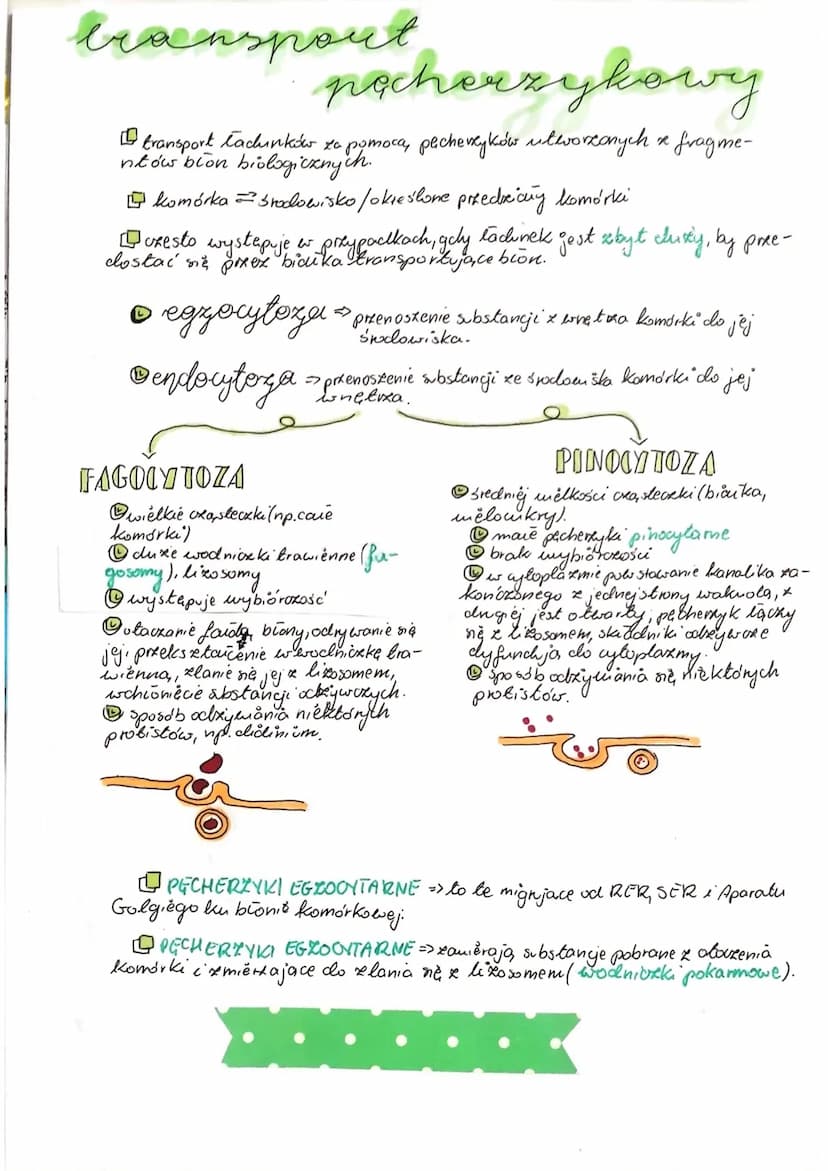 transport
pęcherzykowy
transport ładunków za pomocą pęcherzyków utworzonych z fragme-
ntów błon biologicznych.
komórka ⇄ środowisko/określone przedziały komórki
często występuje w przypadkach, gdy ładunek jest zbyt duży, by prze-
dostać się przez białka transportujące błon.
egzocytoza ⇒ przenoszenie substancji z wnętrza komórki do jej
środowiska.
endocytoza ⇒ przenoszenie substancji ze środowiska komórki do jej
wnętrza.
FAGOCYTOZA
wielkie cząsteczki (np. całe
komórki)
duże wodniczki trawienne (fa-
gosomy), lizosomy
występuje wybiórczość
otaczanie błony, odrywanie się
jej, przekształcenie w wodniczkę tra-
wienną, zlanie się jej z lizosomem,
wchłonięcie substancji odżywczych.
sposób odżywiania niektórych
protistów, np. didinium.
PINOCYTOZA
średniej wielkości cząsteczki (białka,
wielocukry).
małe pęcherzyki pinocytarne
brak wybiórczości
w cytoplazmie powstawanie kanalika za-
kończonego z jednej strony wakuolą, z
drugiej jest otwarty, pęcherzyk łączy
się z lizosomem, składniki odżywcze
dyfundują do cytoplazmy.
sposób odżywiania się niektórych
protistów.
PĘCHERZYKI EGZOCYTARNE ⇒ to te migrujące od RER, SER i Aparatu
Golgiego ku błonie komórkowej.
PĘCHERZYKI EGZOCYTARNE ⇒ zawierają substancje pobrane z otoczenia
komórki i zmierzające do zlania się z lizosomem (wodniczki pokarmowe).